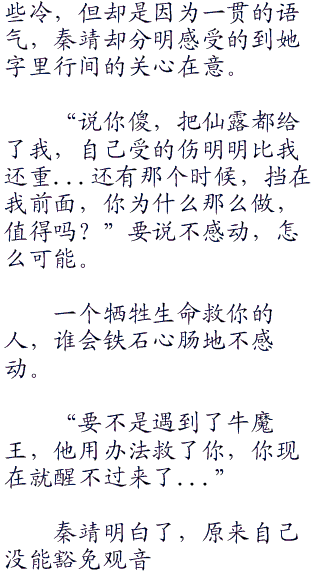 些冷，但却是因为一贯的语
气，秦靖却分明感受的到她
字里行间的关心在意。
“说你傻，把仙露都给
了我，自己受的伤明明比我
还重...还有那个时候，挡在
我前面，你为什么那么做，
值得吗？”要说不感动，怎
么可能。
一个牺牲生命救你的
人，谁会铁石心肠地不感
动。
“要不是遇到了牛魔
王，他用办法救了你，你现
在就醒不过来了...”
秦靖明白了，原来自己
没能豁免观音